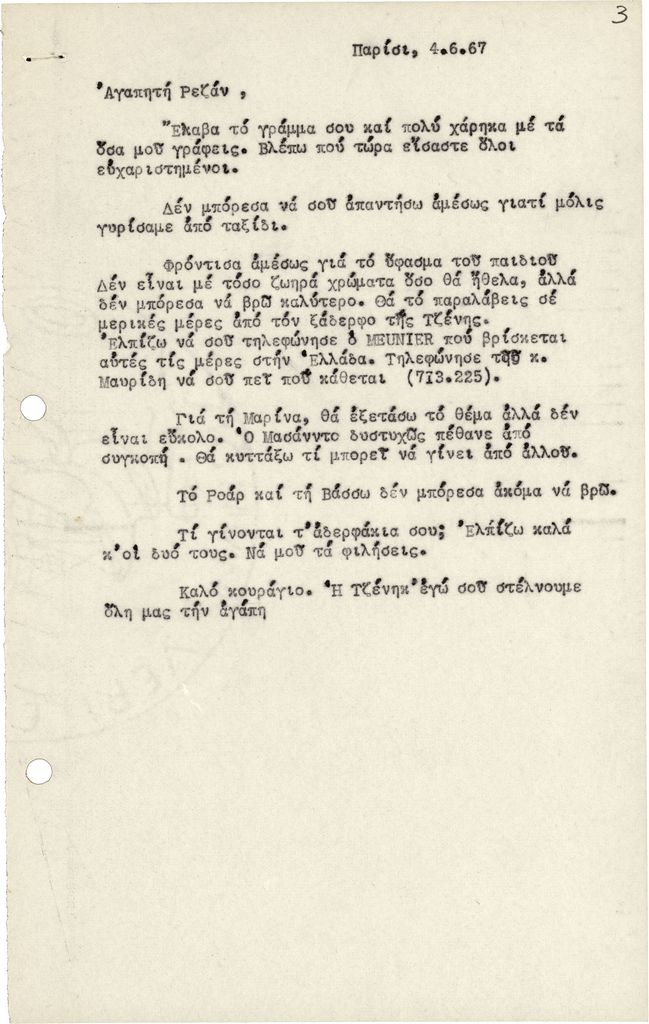 3
Παρίσι, 4.6.67
Ἀγαπητή Ρεζάν ,
Ἔλαβα τό γράμμα σου καί πολύ χάρηκα μέ τά
ὅσα μοῦ γράφεις. Βλέπω πού τώρα εἴσαστε ὅλοι
εὐχαριστημένοι.
Δέν μπόρεσα νά σοῦ ἀπαντήσω ἀμέσως γιατί μόλις
γυρίσαμε ἀπό ταξίδι.
Φρόντισα ἀμέσως γιά τό ὕφασμα τοῦ παιδιοῦ
Δέν εἶναι μέ τόσο ζωηρά χρώματα ὅσο θά ἤθελα, ἀλλά
δέν μπόρεσα νά βρῶ καλύτερο. Θά τό παραλάβεις σέ
μερικές μέρες ἀπό τόν ξάδερφο τῆς Τζένης.
Ἐλπίζω νά σοῦ τηλεφώνησε ὁ MEUNIER πού βρίσκεται
αὐτές τίς μέρες στήν Ἑλλάδα. Τηλεφώνησε τοῦ κ.
Μαυρίδη νά σοῦ πεῖ ποῦ κάθεται (713.225).
Γιά τή Μαρίνα, θά ἐξετάσω τό θέμα ἀλλά δέν
εἶναι εὔκολο. Ὁ Μασάννто δυστυχῶς πέθανε ἀπό
συγκοπή . Θά κυττάξω τί μπορεῖ νά γίνει ἀπό ἀλλοῦ.
Τό Ροάρ καί τή Βάσσω δέν μπόρεσα ἀκόμα νά βρῶ.
Τί γίνονται τ'ἀδερφάκια σου; Ἐλπίζω καλά
κ'οἱ δυό τους. Νά μοῦ τά φιλήσεις.
Καλό κουράγιο. Ἡ Τζένηκ'ἐγώ σοῦ στέλνουμε
ὅλη μας τήν ἀγάπη